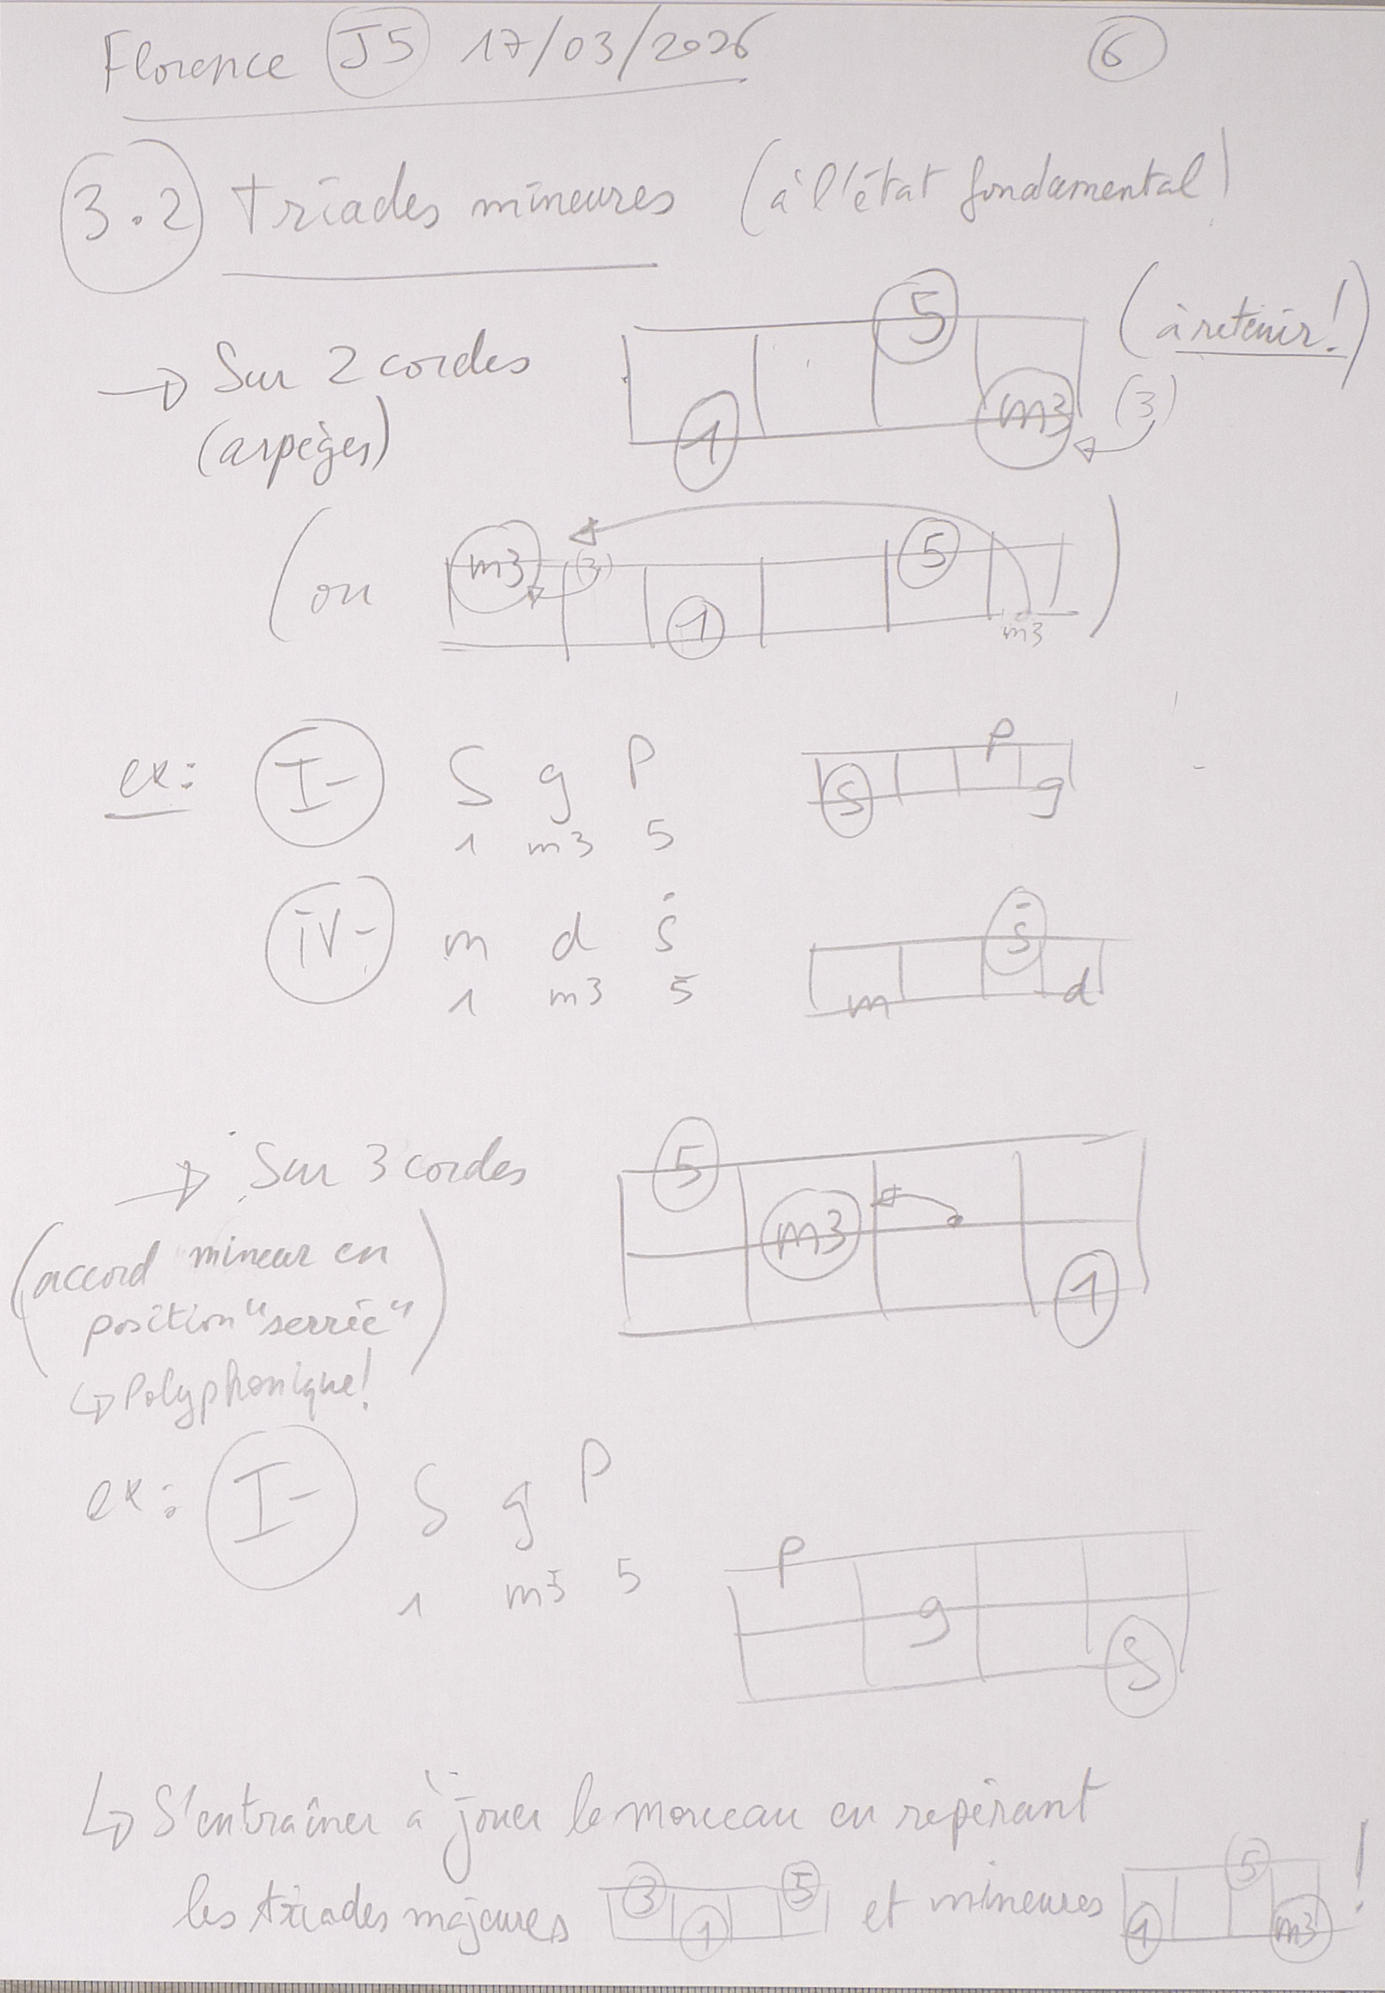 Florence J5 17/03/2026 6
3.2 Triades mineures (à l'état fondamental)
→ Sur 2 cordes 5 (à retenir!)
(arpèges) 1 m3 (3)
(ou m3 (3) 1 5 m3)
ex: I- S g P S P g
1 m3 5
iV- m d ṡ m ṡ d
1 m3 5
→ Sur 3 cordes 5
(accord mineur en m3
position "serrée") 1
↳ Polyphonique!
ex: I- S g P P
1 m3 5 g
S
↳ S'entraîner à jouer le morceau en repérant
les triades majeures 3 1 5 et mineures 1 5 m3 !